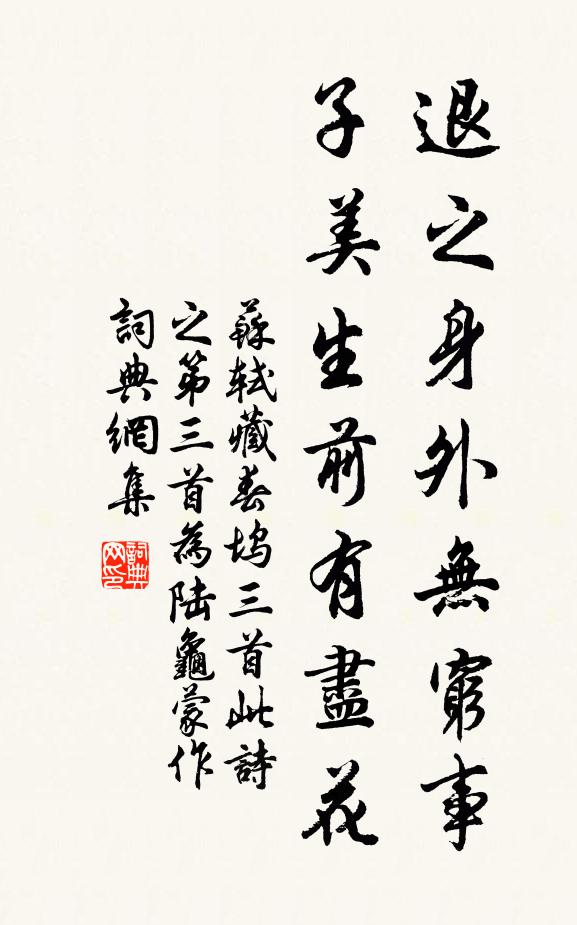 退之身外無窮事
子美生前有盡花
蘇軾藏春塢三首此詩
之第三首為陸龜蒙作
詞典網集
詞典網印